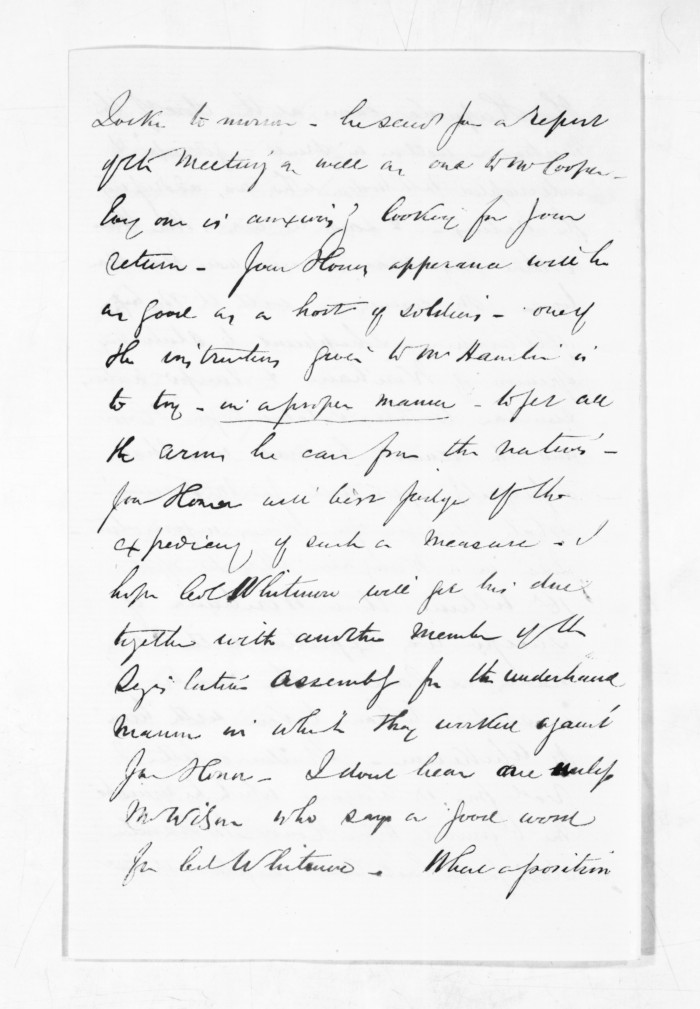 Locke to morrow - he sends for a report
of the Meeting as well as one to Mr Cooper -
Evy one is anxiously looking for your
return - Your Honors apperance will be
as good as a host of soldiers - one of
the instructions given to Mr Hamlin is
to try - in a proper manner - to get all
the arms he can from the natives -
Your Honor will best judge of the
expediency of such a measure - I
hope Col Whitmore will get his due
together with another member of the
Legislative Assembly for the underhand
manner in which they worked against
Your Honor - I dont hear one unless
Mr Wilson who says a good word
for Col Whitmore - What a position